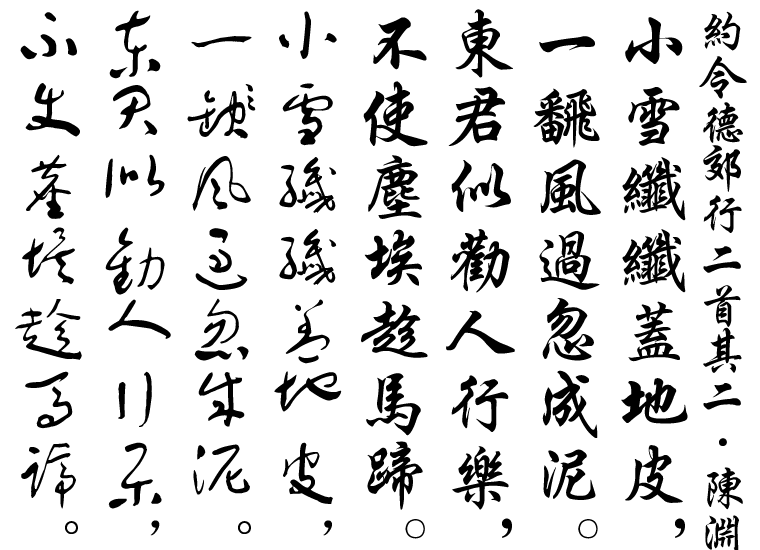 約令德郊行二首其二·陳淵
小雪纖纖蓋地皮，
一翻風過忽成泥。
東君似勸人行樂，
不使塵埃趁馬蹄。
小雪纖纖蓋地皮，
一翻風過忽成泥。
東君似勸人行樂，
不使塵埃趁馬蹄。